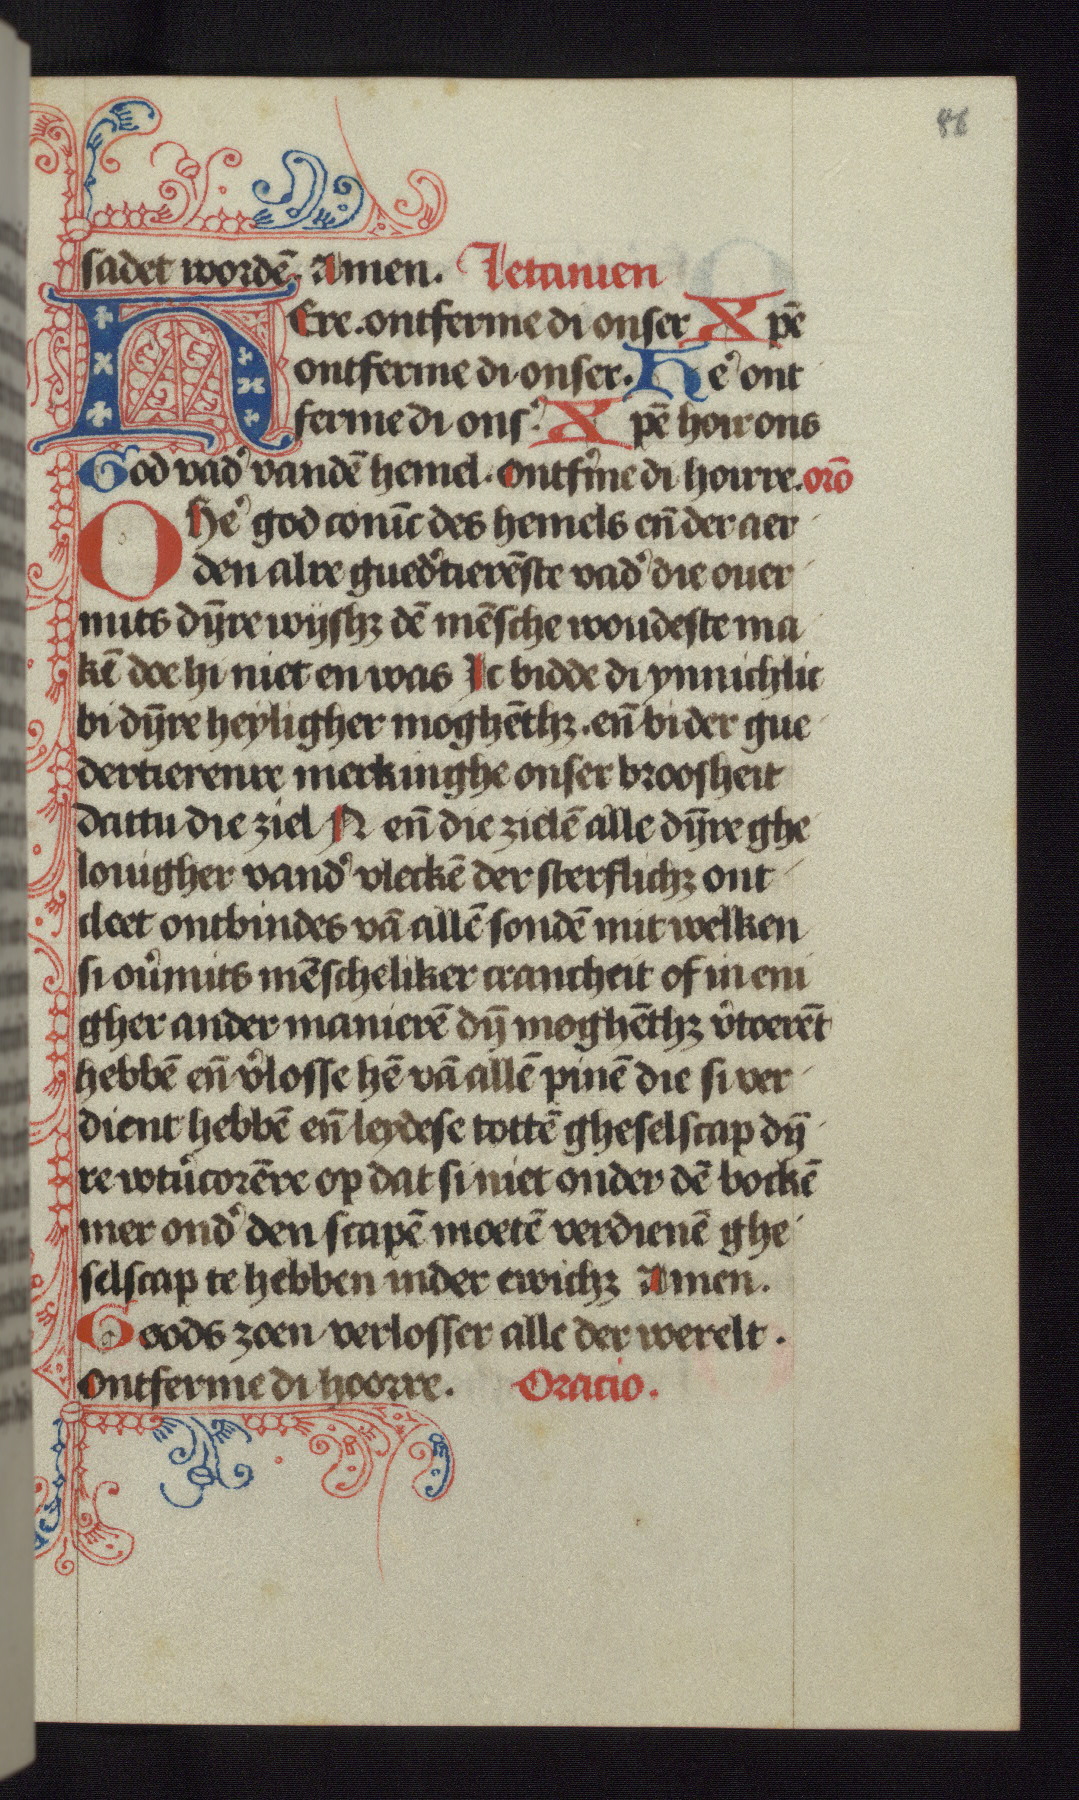 86
sadet wordē. Amen. Letanien
HEre. ontferme di onser Xpē
ontferme di onser. He᷒ ont
ferme di ons᷒. Xpē hoir ons
God vad᷒ vandē hemel. Ontf᷒me di honrre. orō
O He᷒ god coninc des hemels en̄ der aer
den alre gued᷒tierēste vad᷒ die ouer
mits dȳre wijshꝫ dē mēsche woudeste ma
kē doe hi niet en was Ic bidde di ynnichlic
bi dȳre heyligher moghēthꝫ. en̄ bi der gue
dertierenre merkinghe onser broosheit
dattu die ziel N en̄ die zielē alle dȳre ghe
louigher vand᷒ vleckē der sterflichꝫ ont
cleet ontbindes vā allē sondē mit welken
si ou᷒mits mēscheliker crancheit of in eni
gher ander manierē dȳ moghēthꝫ v᷒toerēt
hebbē en̄ v᷒losse hē vā allē pinē die si ver
dient hebbē en̄ leydese tottē gheselscap dȳ
re wtu᷒corēre op dat si niet onder dē bockē
mer ond᷒ den scapē moetē verdienē ghe
selscap te hebben inder ewichꝫ Amen.
Goods zoen verlosser alle der werelt.
Ontferme di hoorre. Oracio.